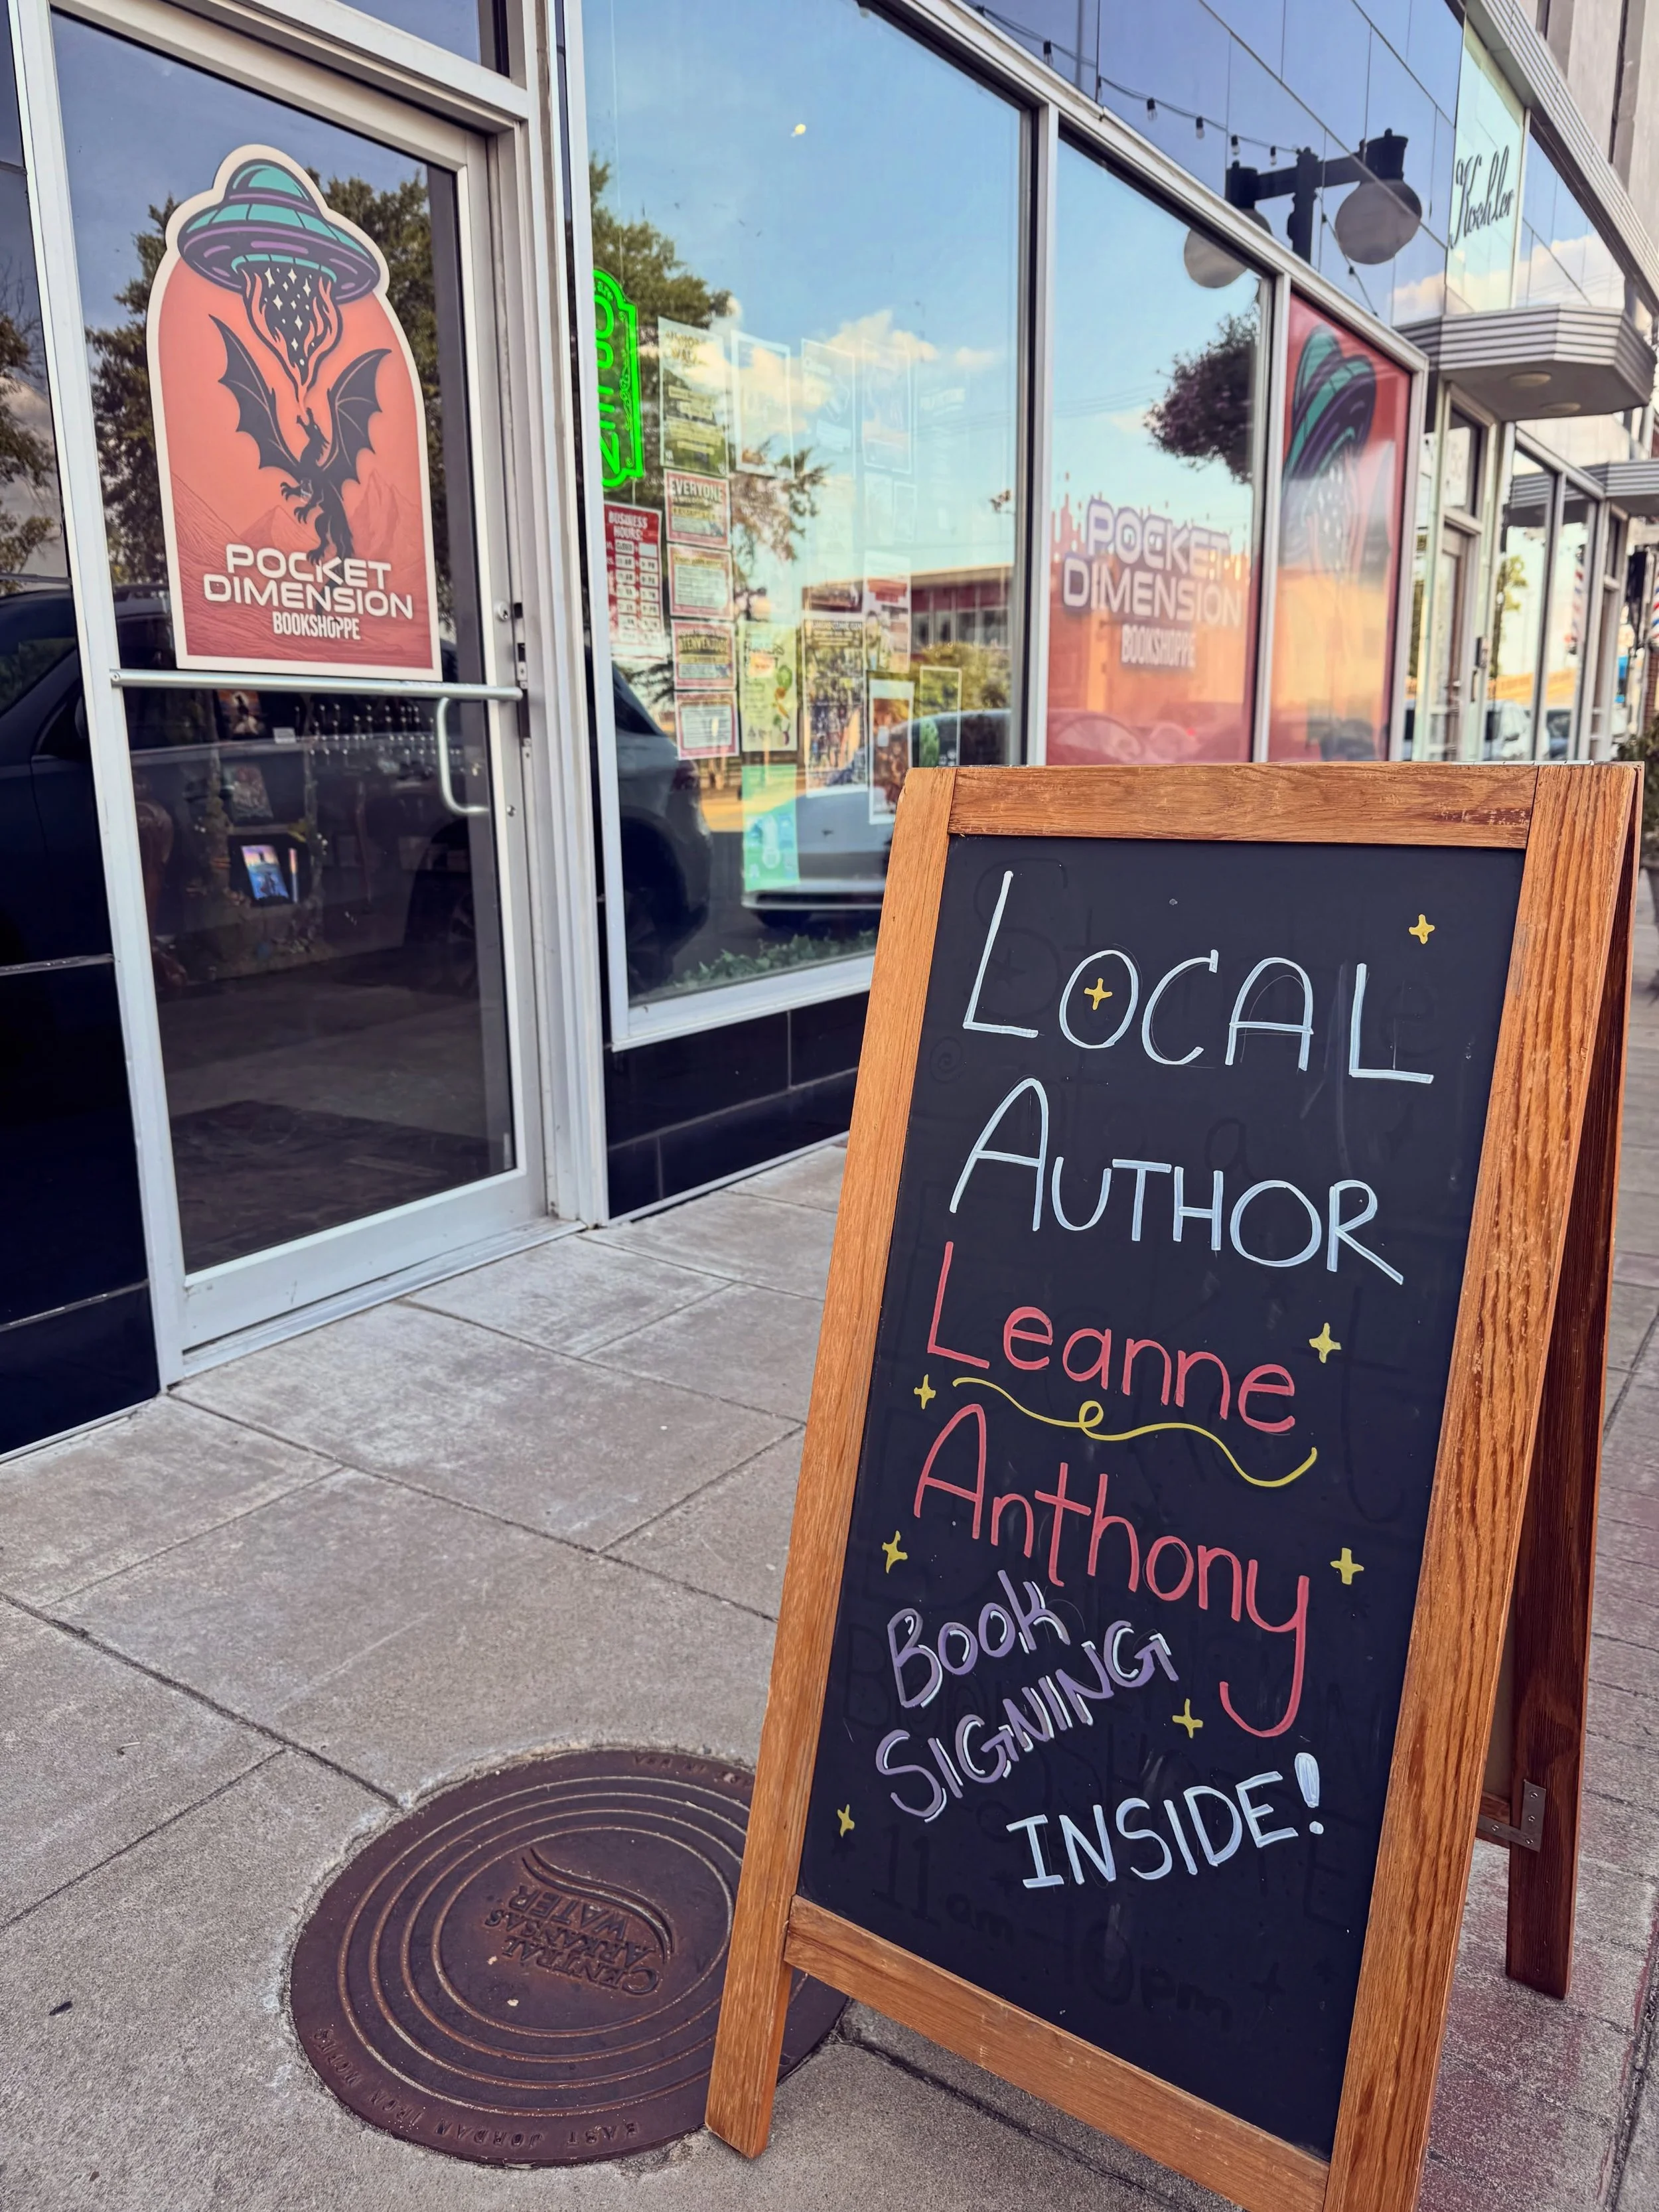 POCKET
DIMENSION
BOOKSHOPPE
EVERYONE
BUSINESS
HOURS:
POCKET
DIMENSION
BOOKSHOPPE
Koehler
LOCAL
AUTHOR
Leanne
Anthony
BOOK
SIGNING
INSIDE!
CENTRAL
ARKANSAS
WATER
EAST JORDAN IRON WORKS